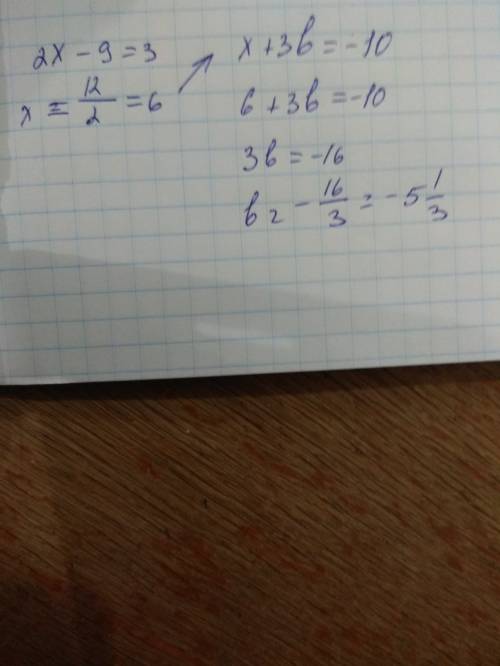 2x - 9 = 3
x = 12/2 = 6
x + 3b = -10
6 + 3b = -10
3b = -16
b = - 16/3 = -5 1/3